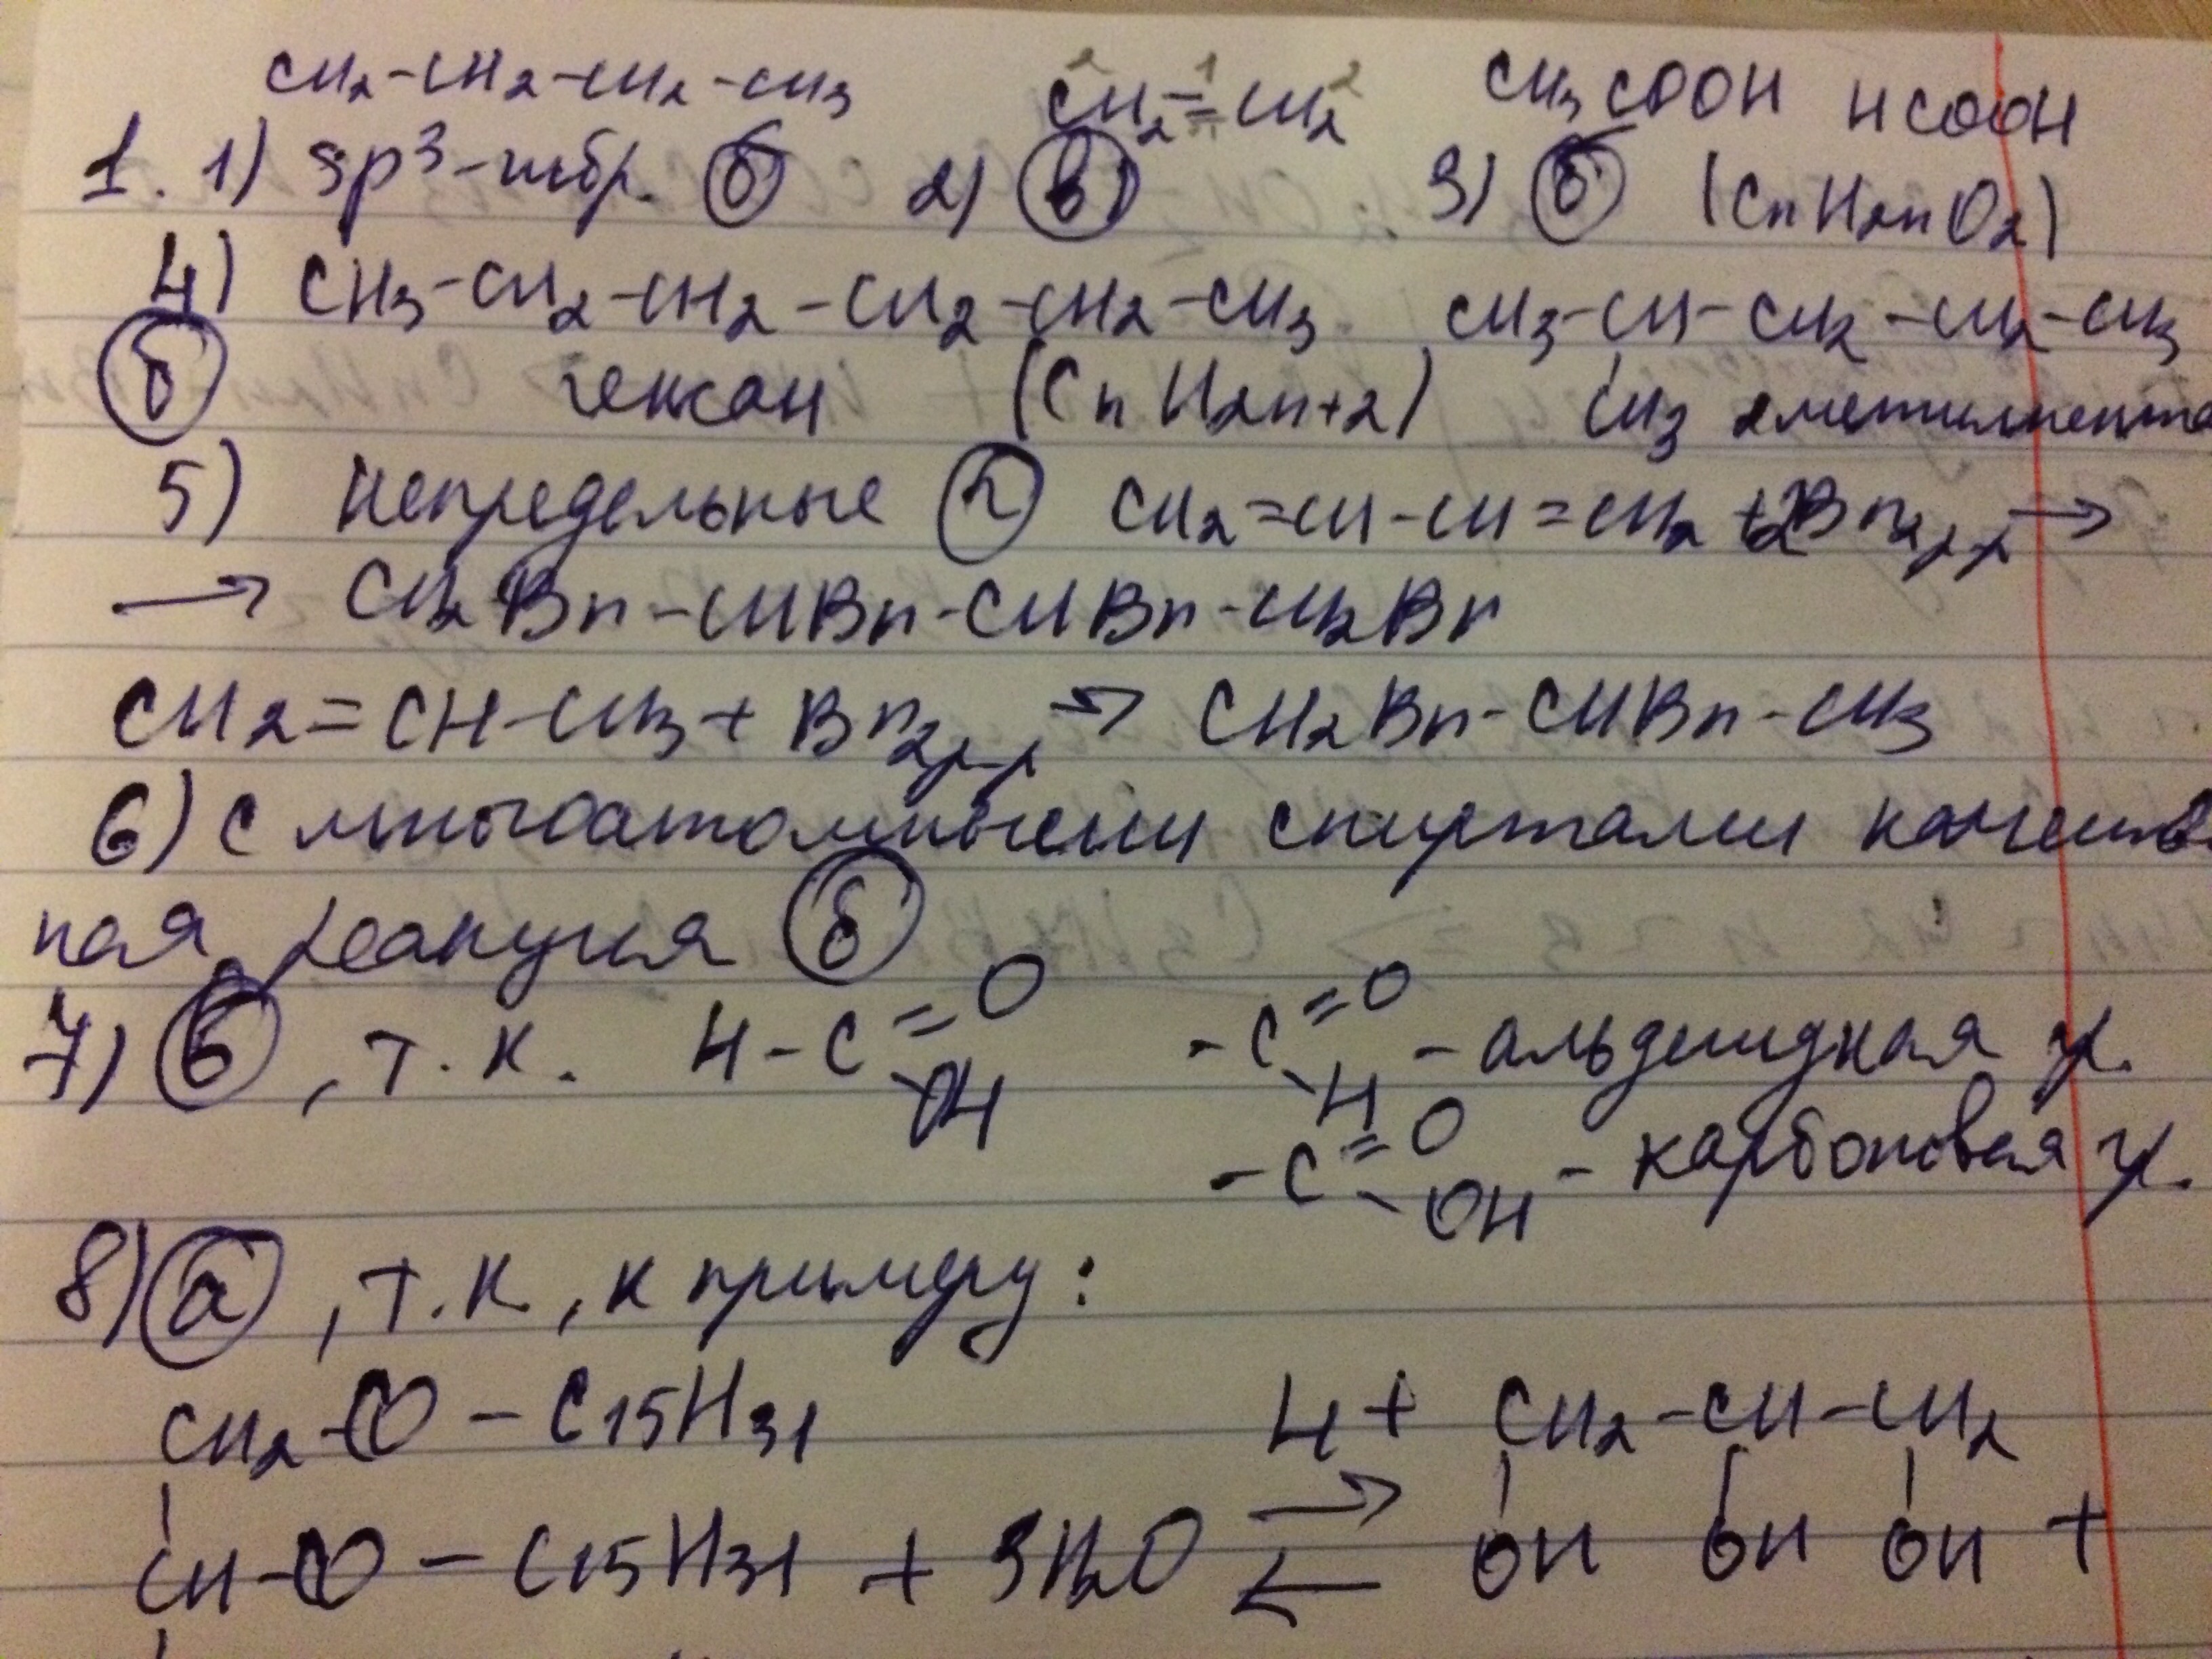 CH2-CH2-CH2-CH3 CH2=CH2 CH3COOH HCOOH
1. 1) sp3-гибр. б 2) в) 3) б (CnH2nO2)
4) CH3-CH2-CH2-CH2-CH2-CH3 CH3-CH-CH2-CH2-CH3
б гексан (CnH2n+2) CH3 2метилпента
5) Непредельные г CH2=CH-CH=CH2 + 2Br2 р-р →
→ CH2Br-CHBr-CHBr-CH2Br
CH2=CH-CH3 + Br2 р-р → CH2Br-CHBr-CH3
6) С многоатомными спиртами качеств
ная реакция б
7) б, т.к. H-C=O -C=O - альдегидная гр.
OH H
-C=O - карбоновая гр.
OH
8) а, т.к., к примеру:
CH2-O-C15H31 H+ CH2-CH-CH2
CH-O-C15H31 + 3H2O ⇄ OH OH OH +